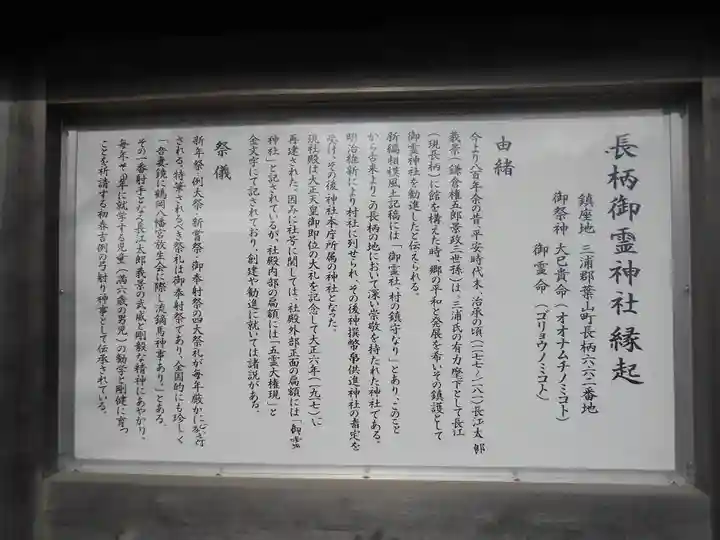 長柄御霊神社縁起
鎮座地 三浦郡葉山町長柄六六二番地
御祭神 大已貴命(オオナムチノミコト)
御霊命(ゴリョウノミコト)
由緒
今より八百年余の昔、平安時代末、治承の頃(一一七七~一一八一)長江太郎
義景(鎌倉権五郎景政三世孫)は、三浦氏の有力麾下として長江
(現長柄)に館を構えた時、郷の平和と発展を希いその鎮護として
御霊神社を勧進したと伝えられる。
新編相模風土記稿には「御霊社、村の鎮守なり」とあり、このこと
から古来より、この長柄の地において深い崇敬を持たれた神社である。
明治維新により村社に列せられ、その後神撰幣帛供進神社の指定を
受け、その後神社本庁所属の神社となった。
現社殿は大正天皇御即位の大礼を記念して大正六年(一九一七)に
再建された。因みに社号に関しては、社殿外部正面の扁額には「御霊
神社」と記されているが、社殿内部の扁額には「五霊大権現」と
金文字にて記されており、創建や勧進に就いては諸説がある。
祭儀
新年祭・例大祭・新嘗祭・御奉射祭の四大祭礼が毎年厳かに
される。特筆されるべき祭礼は御奉射祭であり、全国的にも珍しく
「吾妻鏡に鶴岡八幡宮放生会に際し流鏑馬神事あり」とある。
その一番射手となる長江太郎義景の武威と剛毅な精神にあやかり、
毎年その年に就学する児童(満六歳の男児)の勤学と剛健に育つ
ことを祈請する初春吉例の弓射り神事として伝承されている。